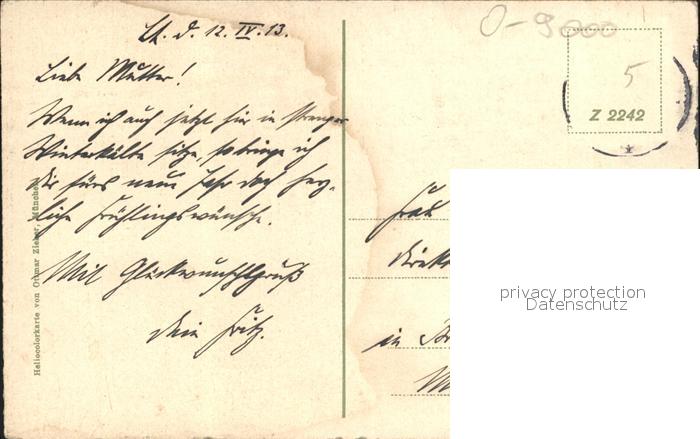 d. 12. IV. 13.
Liebe Mutter!
Wenn ich auch jetzt hier in strenger
Winterkälte sitze, so bringe ich
Dir fürs neue Jahr doch herz-
liche Frühlingswünsche.
Mit Glückwunschgruß
Dein Fritz.
Heliocolorkarte von Ottmar Zieher, München
O-9000
5
Z 2242
Frau
in
privacy protection
Datenschutz